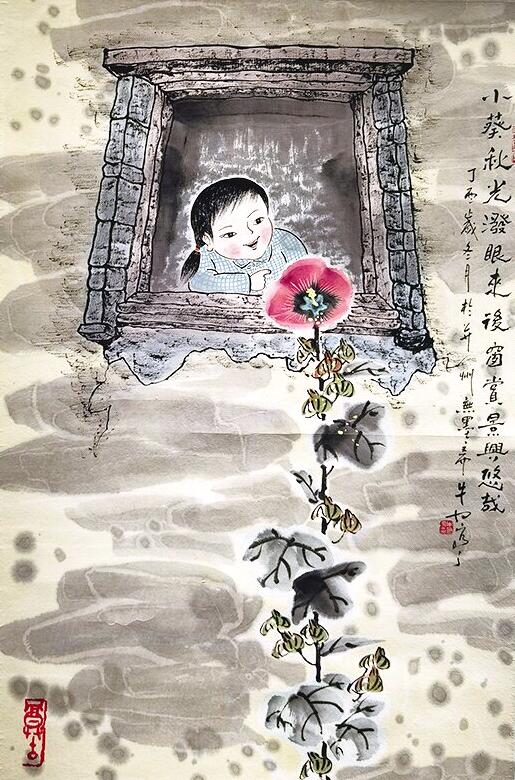 小葵秋光潑眼來後窗賞景興悠哉
丁酉歲冬月於并州無墨齋牛